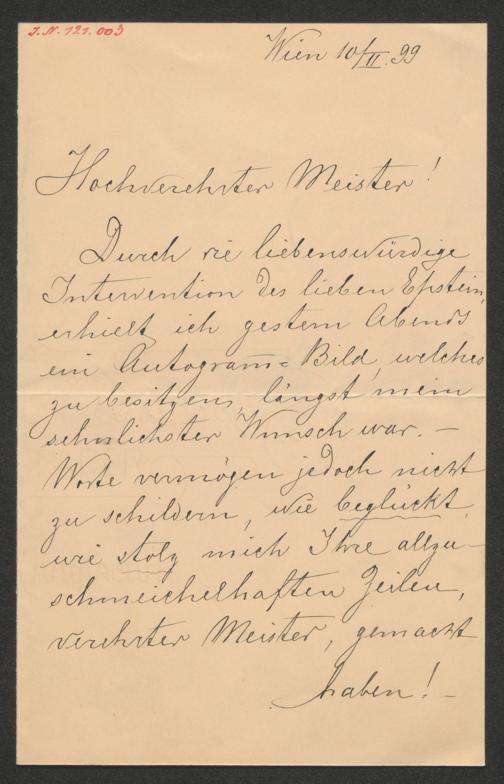 I. N. 121.003
Wien 10/II. 99
Hochverehrter Meister!
Durch die liebenswürdige
Intervention des lieben Epstein,
erhielt ich gestern Abends
ein Autogram̄=Bild, welches
zu besitzen, längst mein
sehnlichster Wunsch war. –
Worte vermögen jedoch nicht
zu schildern, wie beglückt,
wie stolz mich Ihre allzu-
schmeichelhaften Zeilen,
verehrter Meister, gemacht
haben! –